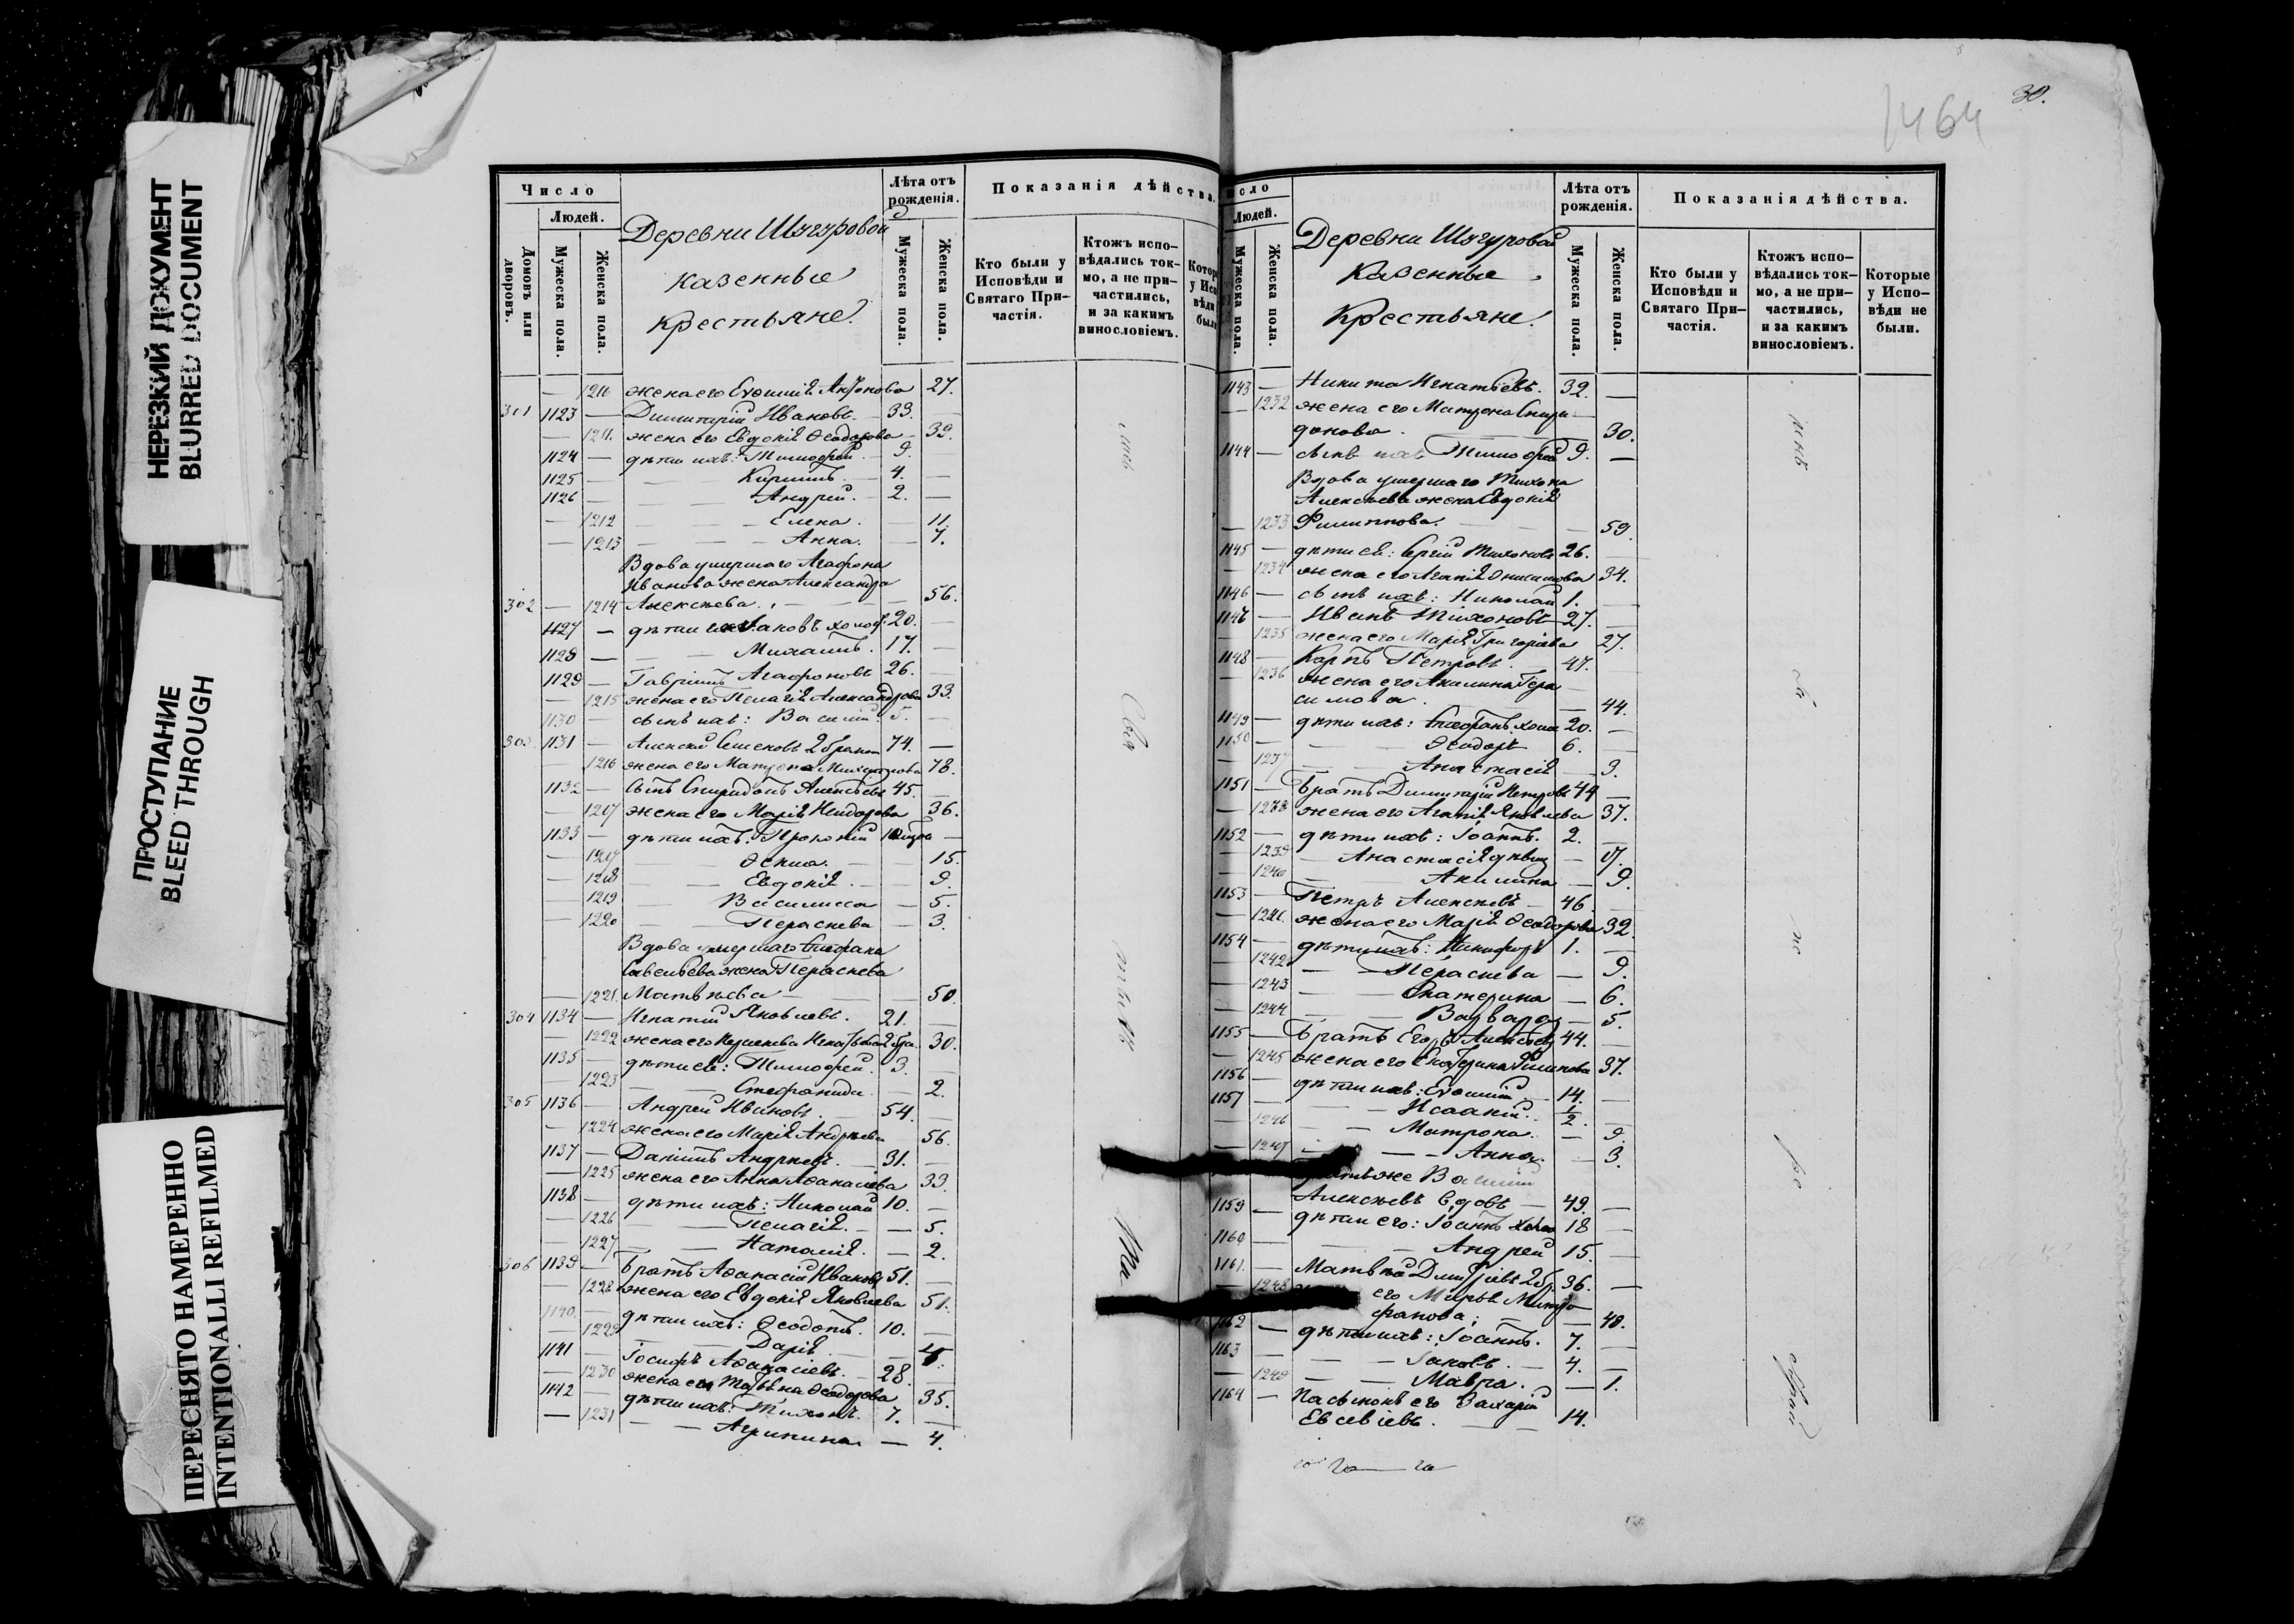 НЕРЕЗКИЙ ДОКУМЕНТ
BLURRED DOCUMENT
ПРОСТУПАНИЕ
BLEED THROUGH
ПЕРЕСНЯТО НАМЕРЕННО
INTENTIONALLI REFILMED
Число
Людей.
Домовъ или дворовъ.
Мужеска пола.
Женска пола.
Деревни Шугуровой
казенные
крестьяне.
Лѣта отъ
рожденія.
Мужеска пола.
Женска пола.
Показанія дѣйства.
Кто были у
Исповѣди и
Святаго При-
частія.
Ктожъ испо-
вѣдались ток-
мо, а не при-
частились,
и за какимъ
винословіемъ.
— 1210 жена его Антонова 27.
301 1123 — Димитрій Ивановъ. 33.
— 1211. жена его Евдокія Ѳеодорова 39.
1124 — дѣти ихъ: Тимофей 9.
1125 — Кириллъ 4.
1126 — Андрей. 2.
— 1212 Елена. 11.
— 1213 Анна. 7.
Вдова умершаго Агафона
Иванова жена Александра
302 — 1214 Алексѣева. 56.
1127 — дѣти ея Іаковъ холос. 20.
1128 — Михаилъ. 17.
1129 — Гавріилъ Агафоновъ 26.
— 1215 жена его Пелагія Александрова 33.
1130 — сынъ ихъ: Василій 5.
303 1131 — Алексій Семеновъ 2 бракомъ 74. —
— 1216 жена его Матрона 78.
1132 — Сынъ Спиридонъ Алексѣевъ 45.
— 1217 жена его Марія 36.
1133 — дѣти ихъ: Прокопій —
— 1217 15.
— 1218 Евдокія. 9.
— 1219 Василисса — 5.
— 1220 Параскева — 3.
Вдова умершаго Стефана
Савельева жена Параскева
— 1221. Матвѣева 50.
304 1134 — Игнатій Яковлевъ. 21.
— 1222 жена его Игнатьева 2 бра. 30.
1135 — дѣти ея: Тимофей. 3.
— 1223 Стефанида 2.
305 1136 — Андрей Ивановъ 54.
— 1224 жена его Марія Андреева 56.
1137 — Даніилъ Андреевъ. 31.
— 1225 жена его Анна Аѳанасіева 33.
1138 — дѣти ихъ: Николай 10.
— 1226 Пелагія. — 5.
— 1227 Наталія. — 2.
306 1139 — Братъ Аѳанасій Ивановъ 51.
— 1228 жена его Евдокія Яковлева 51.
1140. — дѣти ихъ: Ѳеодотъ. 10.
— 1229 Дарія
1141 — Іосифъ Аѳанасіевъ. 28
— 1230 жена его Татьяна Ѳеодорова 35.
1142 — дѣти ихъ: Тихонъ. 7.
— 1231 Агрипина — 4.
1464
30.
Людей.
Мужеска пола.
Женска пола.
Деревни Шугуровой
казенные
крестьяне.
Лѣта отъ
рожденія.
Мужеска пола.
Женска пола.
Показанія дѣйства.
Кто были у
Исповѣди и
Святаго При-
частія.
Ктожъ испо-
вѣдались ток-
мо, а не при-
частились,
и за какимъ
винословіемъ.
Которые
у Испо-
вѣди не
были.
1143 — Никита Игнатьевъ. 32. —
— 1232 жена его Матрона Спири-
донова. 30.
1144 — сынъ ихъ Тимофей 9. —
Вдова умершаго Тихона
Алексѣева жена Евдокія
— 1233 Филиппова. 59.
1145 — дѣти ея: Сергій Тихоновъ 26.
— 1234 жена его Агапія Онисимова 34.
1146 — сынъ ихъ: Николай 1.
1147 — Иванъ Тихоновъ 27.
— 1235 жена его Марія Григоріева 27.
1148 — Карпъ Петровъ. 47.
— 1236 жена его Акилина Гера-
симова. 44.
1149 — дѣти ихъ: Стефанъ холос 20.
1150 — Ѳеодоръ 6.
— 1237 Анастасія 3.
1151 — Братъ Димитрій Петровъ 44 —
— 1238 жена его Агапія Яковлева 37.
1152 — дѣти ихъ: Іоаннъ. 2.
— 1239 Анастасія дѣвиц — 17.
— 1240 Акилина — 9.
1153 — Петръ Алексѣевъ 46
— 1241. жена его Марія Ѳеодорова 32.
1154 — дѣти ихъ: Никифоръ 1. —
— 1242 Параскева — 9.
— 1243 Екатерина — 6.
— 1244 Варвара — 5.
1155 — Братъ Егоръ Алексѣевъ 44. —
— 1245 жена его Екатерина 37.
1156 — дѣти ихъ: Евѳимій 14.
1157 — Исаакій. 1/2
— 1246 Матрона. — 9.
— 1247 Анна. — 3.
же Василій
1159 — Алексѣевъ вдовъ — 49. —
дѣти его: Іоаннъ холос 18
1160 — Андрей 15. —
1161. — Матвѣй Дмитріевъ 2 бр. 36. —
1248 его Марія Митро-
фанова; — 48.
1162 — дѣти ихъ: Іоаннъ. 7.
1163 — Іаковъ. 4. —
— 1249 Мавра. — 1.
1164 — Пасынокъ его Захарій
Евсевіевъ. 14.